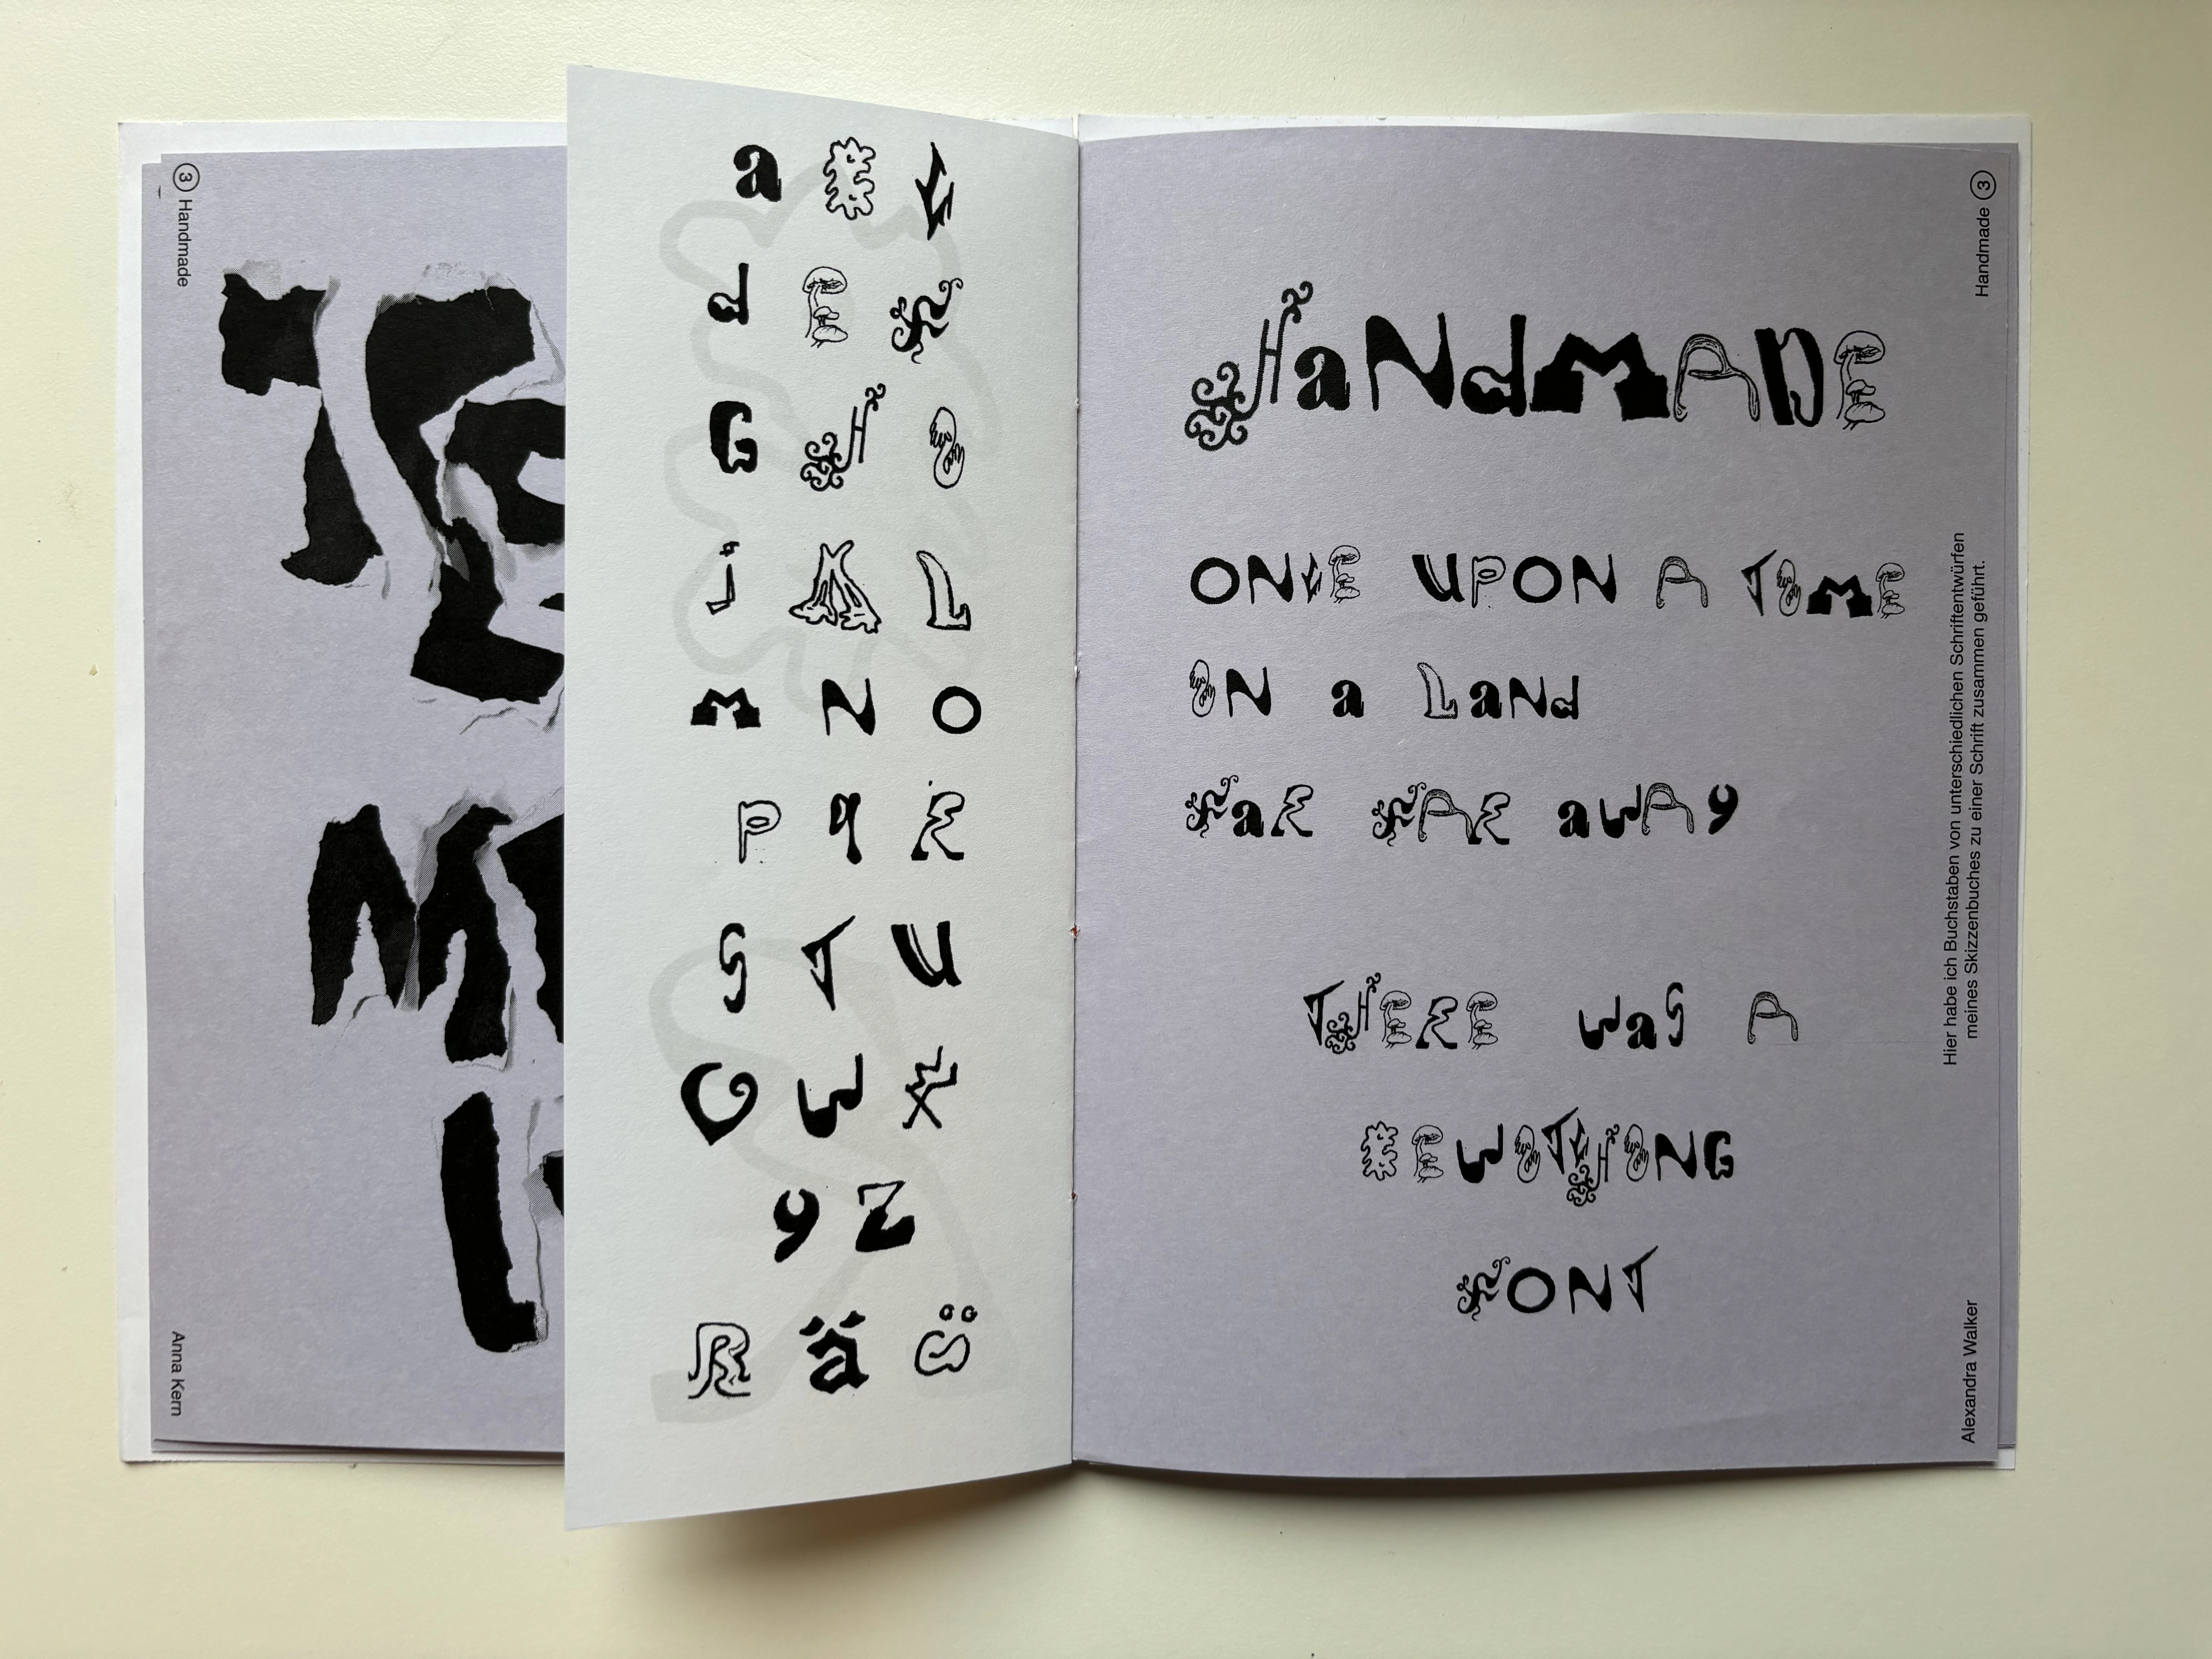 3 Handmade
Anna Kern
a B C
d E F
G H I
j K L
M N O
P q R
S T U
V W X
y Z
ß ä ü
Handmade 3
HaNdMADE
ONCE UPON A TIME
IN a LaNd
FaR FAR aWAy
THERE WaS A
BEWITCHING
FONT
Hier habe ich Buchstaben von unterschiedlichen Schriftentwürfen
meines Skizzenbuches zu einer Schrift zusammen geführt.
Alexandra Walker